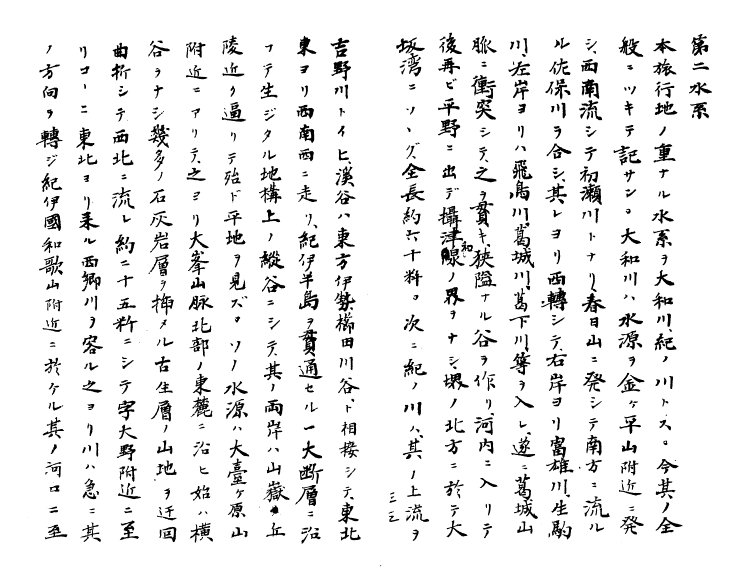 第二水系
本旅行地ノ重ナル水系ヲ大和川、紀ノ川トス。今其ノ全
般ニツキテ記サン。大和川ハ水源ヲ金ヶ平山附近ニ発
シ、西南流シテ初瀬川トナリ、春日山ニ発シテ南方ニ流ル
ル佐保川ヲ合シ、其レヨリ西轉シテ、右岸ヨリ富雄川、生駒
川、左岸ヨリハ飛鳥川、葛城川、葛下川、等ヲ入レ、遂ニ葛城山
脈ニ衝突シテ、之ヲ貫キ、狭隘ナル谷ヲ作リ、河内ニ入リテ
後再ビ平野ニ出デ、攝津和ノ界ヲナシ、堺ノ北方ニ於テ大
坂湾ニソヽグ、全長約六十粁。次ニ紀ノ川ハ、其ノ上流ヲ
三三
吉野川トイヒ、溪谷ハ東方伊勢、櫛田川谷、ト相接シテ、東北
東ヨリ西南西ニ走リ、紀伊半島ヲ貫通セル一大断層ニ沿
フテ生ジタル地構上ノ縦谷ニシテ、其ノ両岸ハ山嶽、丘
陵近ク逼リテ殆ド平地ヲ見ズ。ソノ水源ハ大臺ヶ原山
附近ニアリテ、之ヨリ大峯山脉北部ノ東麓ニ沿ヒ始ハ横
谷ヲナシ幾多ノ石灰岩層ヲ挿メル古生層ノ山地ヲ迂回
曲折シテ西北ニ流レ約二十五粁ニシテ字大野附近ニ至
リコヽニ東北ヨリ来ル西郷川ヲ容ル之ヨリ川ハ急ニ其
ノ方向ヲ轉ジ紀伊國和歌山附近ニ於ケル其ノ河口ニ至